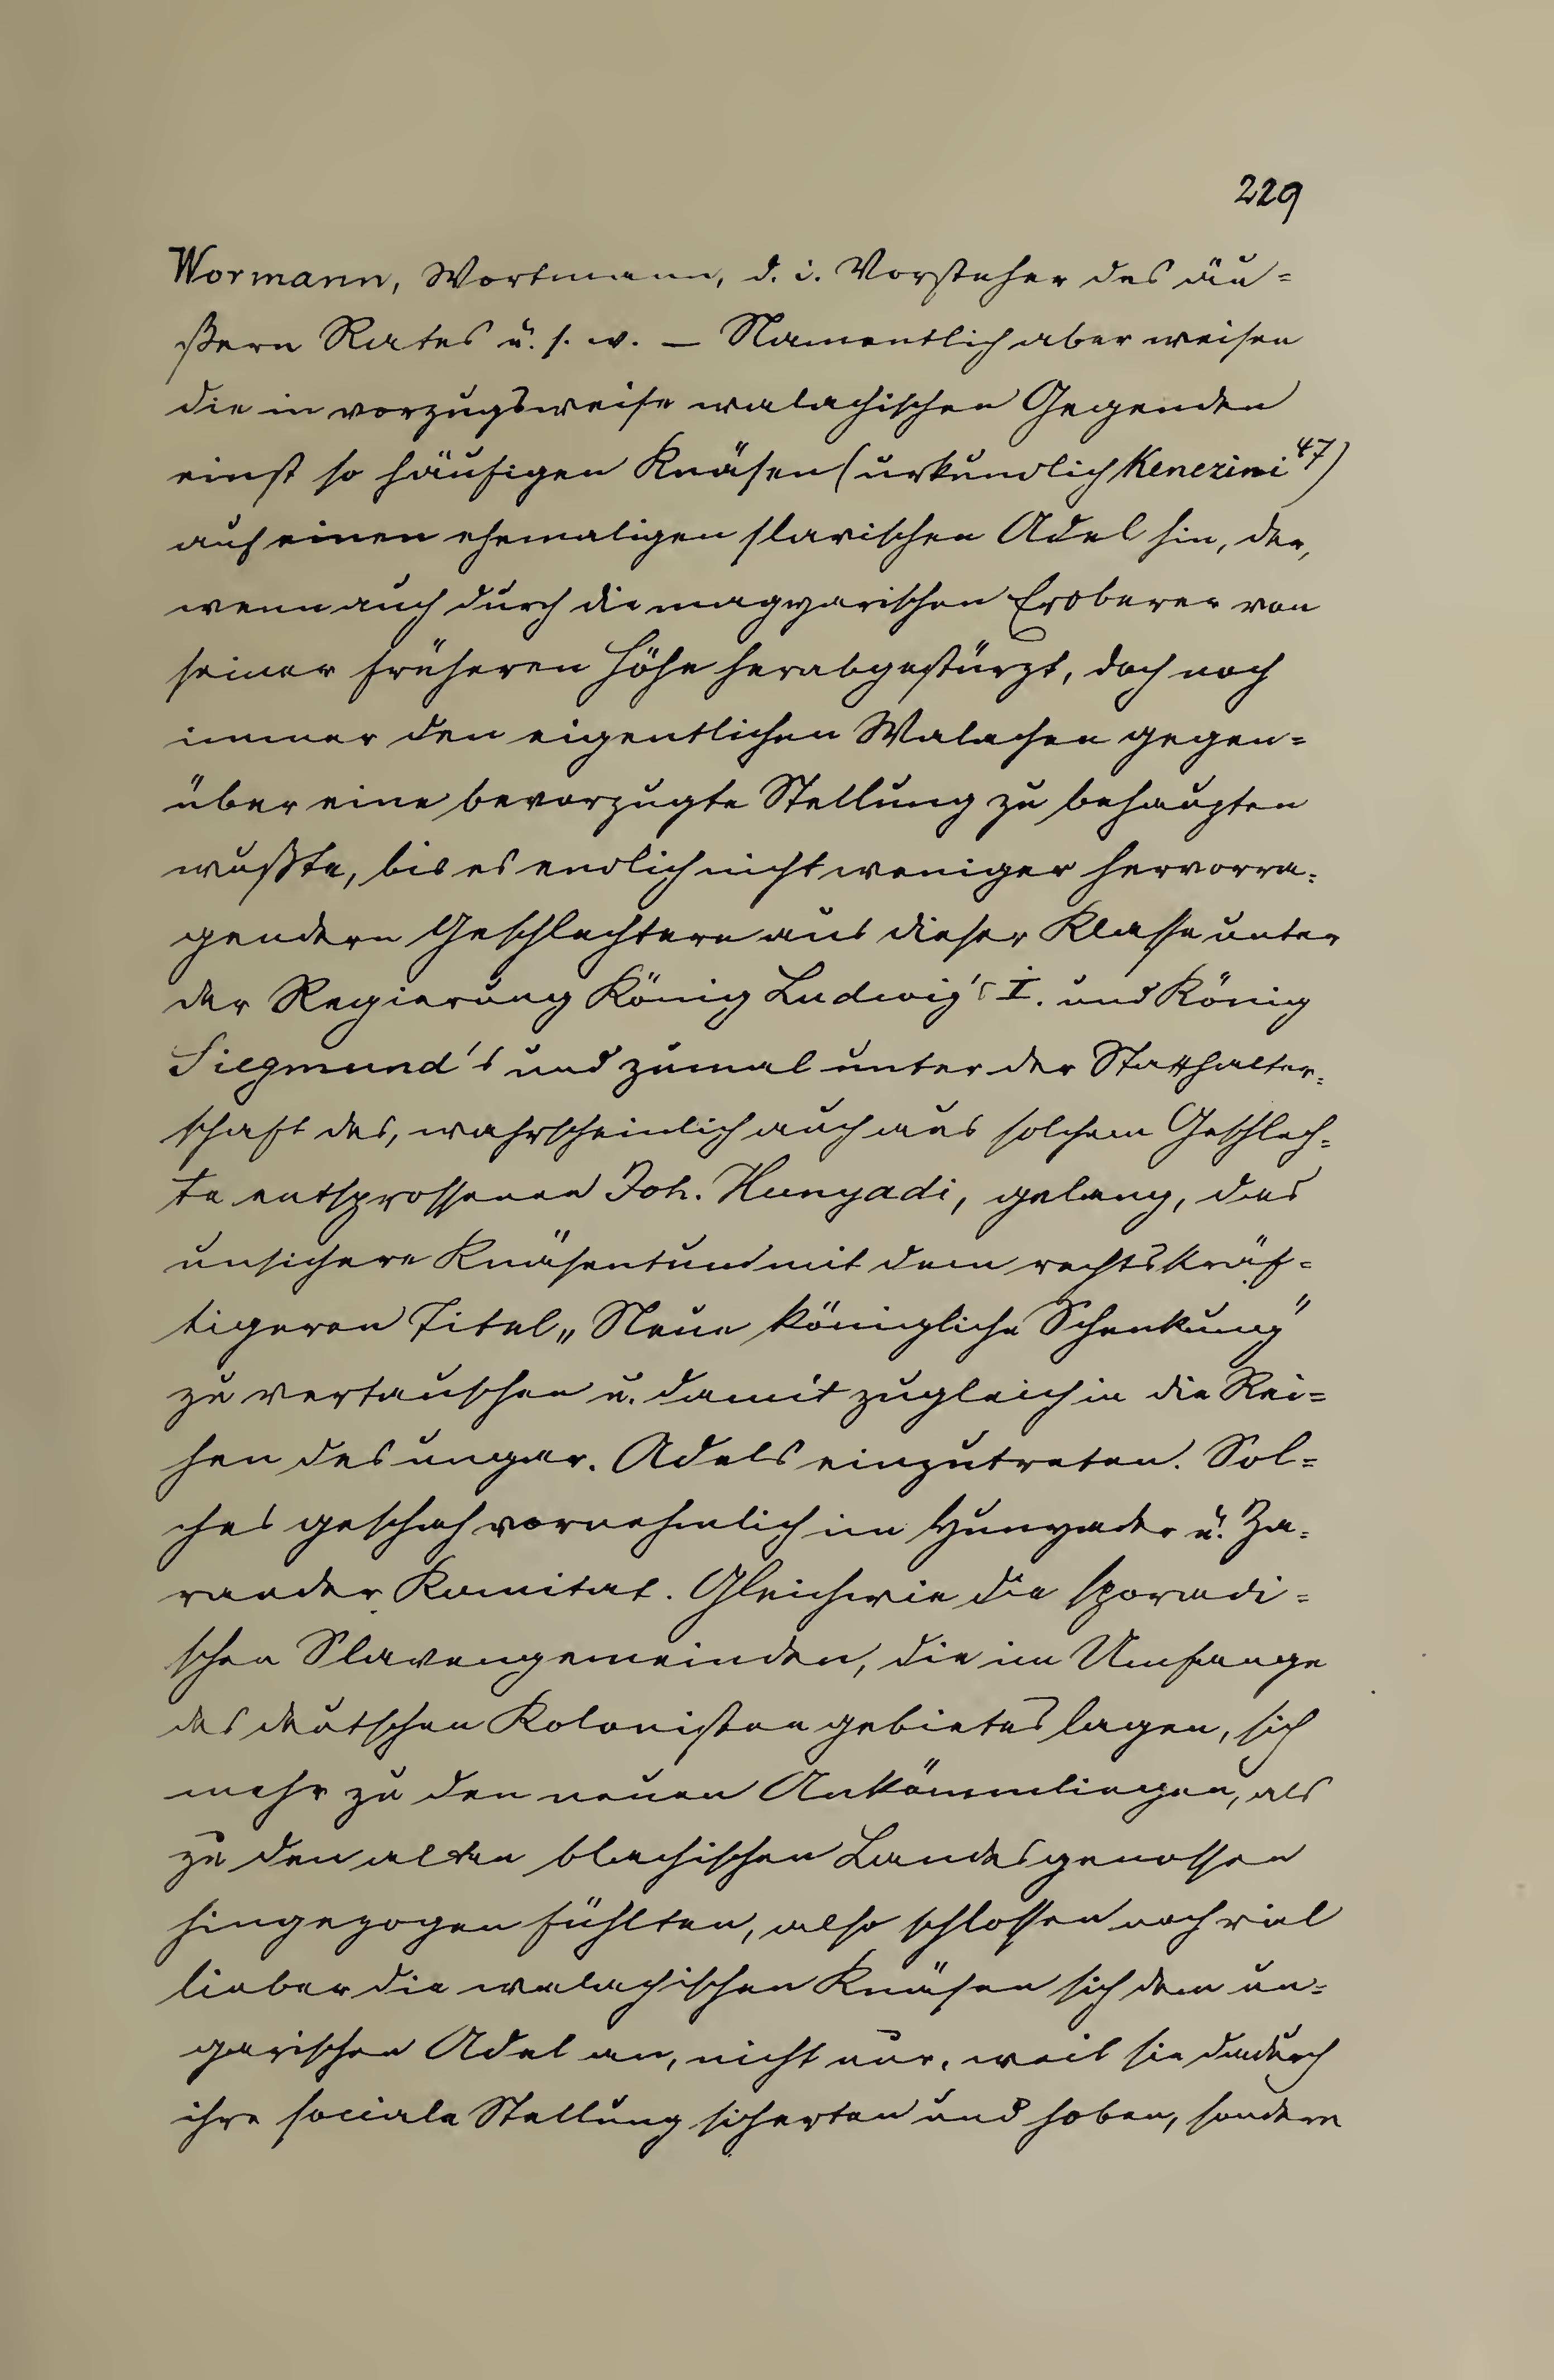 229
Wormann, Wortmann, d. i. Vorsteher des äu-
ßern Rates u. s. w. — Namentlich aber weisen
die in vorzugsweise walachischen Gegenden
einst so häufigen Knäsen (urkundlich Kenezini 47)
auf einen ehemaligen slavischen Adel hin, der,
wenn auch durch die magyarischen Eroberer von
seiner früheren Höhe herabgestürzt, doch noch
immer den eigentlichen Walachen gegen-
über eine bevorzugte Stellung zu behaupten
wußte, bis es endlich nicht weniger hervorra-
gendern Geschlechtern aus dieser Klasse unter
der Regierung König Ludwig's I. und König
Siegmund's und zumal unter der Statthalter-
schaft des, wahrscheinlich auch aus solchem Geschlech-
te entsprossenen Joh. Hunyadi, gelang, das
unsichere Knäsentum mit dem rechtskräf-
tigeren Titel „Neue königliche Schenkung"
zu vertauschen u. damit zugleich in die Rei-
hen des ungar. Adels einzutreten. Sol-
ches geschah vornehmlich im Hunyader u. Za-
rander Komitat. Gleichwie die sporadi-
schen Slavengemeinden, die im Umfange
des deutschen Kolonistengebietes lagen, sich
mehr zu den neuen Ankömmlingen, als
zu den alten blachischen Landesgenossen
hingezogen fühlten, also schlossen noch viel
lieber die walachischen Knäsen sich dem un-
garischen Adel an, nicht nur, weil sie dadurch
ihre sociale Stellung sicherten und hoben, sondern